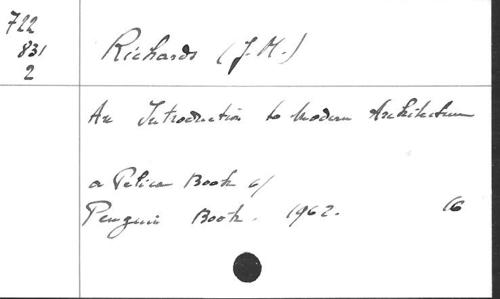 722
831
2
Richards (J. M.)
An Introduction to Modern Architecture
a Pelican Book of
Penguin Book. 1962. 16